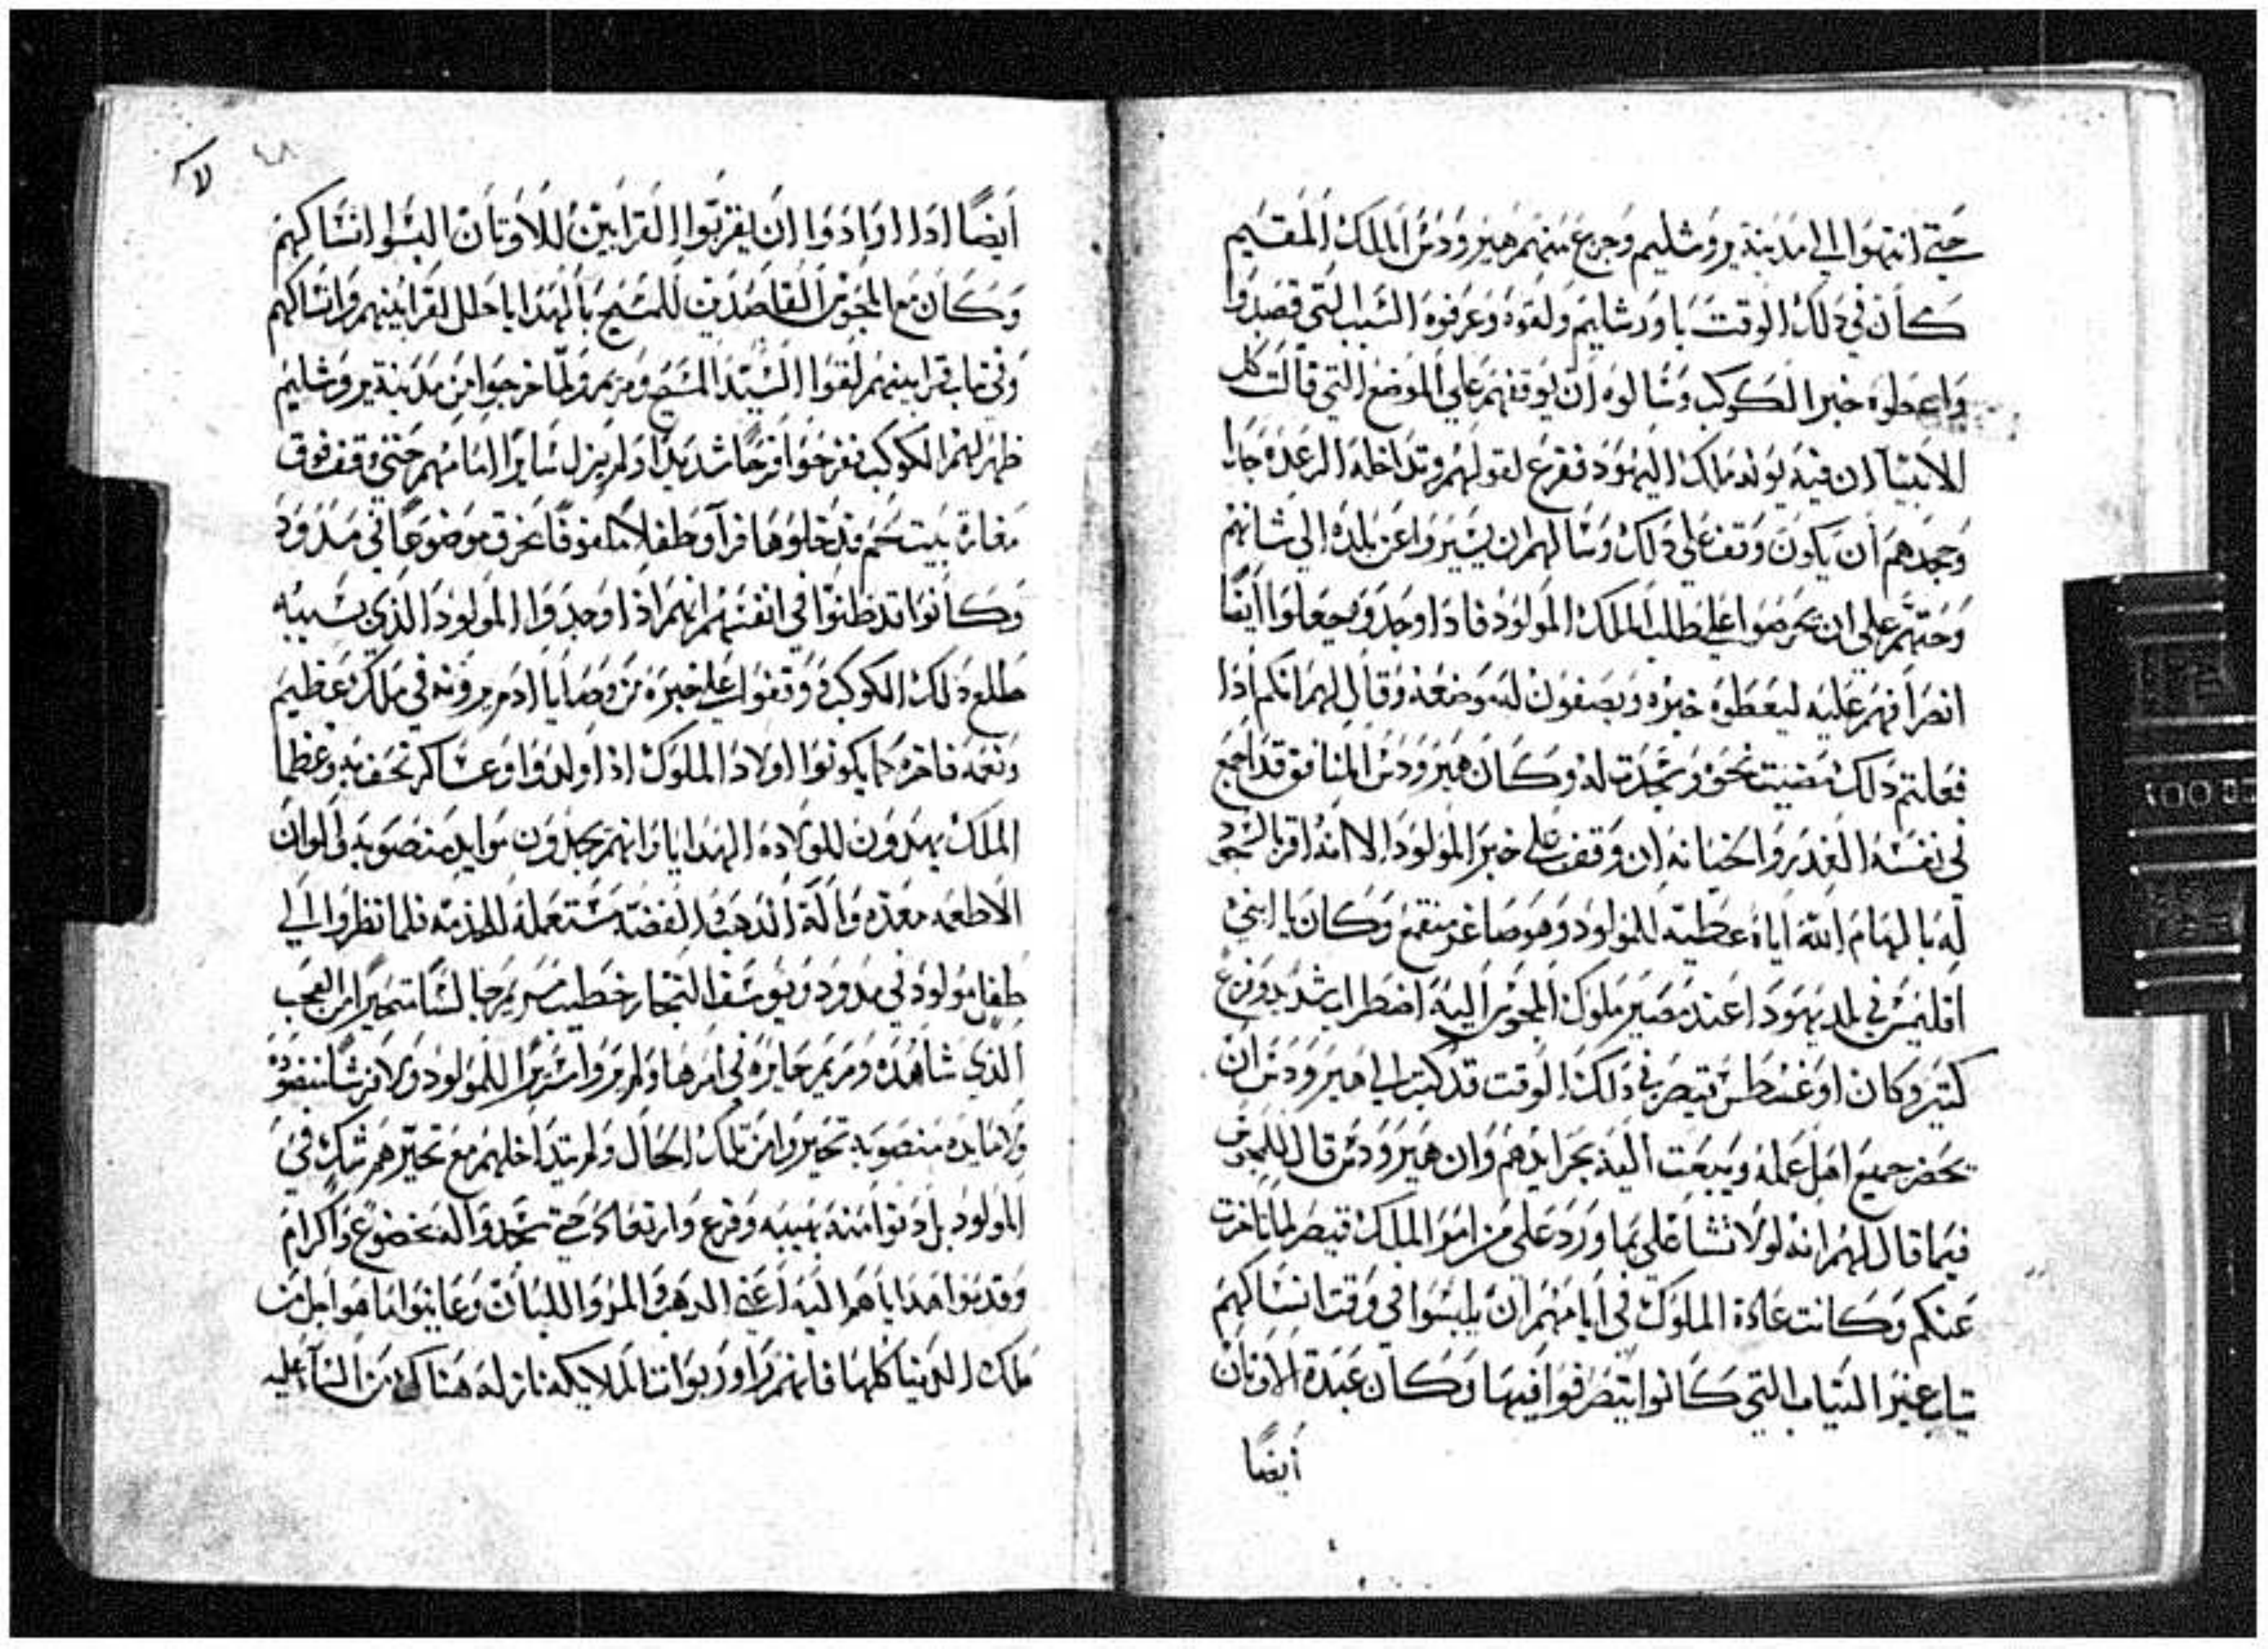 حتي انتهوا الي مدينة يروشليم وجزع منهم هيرودس الملك المقيم
كان في ذلك الوقت باورشليم ولقوه وعرفوه السبب التي قصدوا
واعطوه خبر الكوكب وسالوه ان يوقفهم علي الموضع التي قالت كل
الانبيا ان فيه يولد ملك اليهود ففزع لقولهم وتداخله الرعده
وجهدهم ان يكون وقف علي ذلك وسالهم ان يسيروا عن بلده الي شانهم
وحتهم علي ان يحرصوا علي طلب الملك المولود فاذا وجدوه يجعلوا ايضا
انصرافهم عليه ليعطوه خبره ويصفون له وضعه وقال لهم انكم اذا
فعلتم ذلك مضيت نحوه وسجدت له وكان هيرودس المنافق قد اجمع
في نفسه الغدر والخيانه ان وقف علي خبر المولود الا انه اقر بالسجود
له بالهام الله اياه عطيه للمولود وهو صاغر منقمع وكان يا ابني
اقليمس في بلد يهودا عند مصير ملوك المجوس اليه اضطراب شديد وفزع
كتير وكان اوغسطس قيصر في ذلك الوقت قد كتب الي هيرودس ان
يحضر جميع اهل عمله ويبعت اليه بجرايدهم وان هيرودس قال للمجوس
فيما قال لهم انه لولا تشاغلي بما ورد علي من امر الملك قيصر لما تاخرت
عنكم وكانت عادة الملوك في ايامهم ان يلبسوا في وقت انساكهم
تياب غير التياب التي كانوا يتصرفوا فيها وكان عبدة الاوتان
ايضا
ايضا اذا ارادوا ان يقربوا القرابين للاوتان البسوا انساكهم
وكان مع المجوس القاصدين للمسيح بالهدايا حلل لقرابينهم وانساكهم
وفي تياب قرابينهم لقوا السيد المسيح ومريم ولما خرجوا من مدينة يروشليم
ظهر لهم الكوكب ففرحوا فرحا شديدا ولم يزل سايرا امامهم حتي وقف فوق
مغارة بيت لحم فدخلوها فراو طفلا ملفوفا بخرق موضوعا في مدود
وكانوا قد ظنوا في انفسهم انهم اذا وجدوا المولود الذي بسببه
طلع ذلك الكوكب ووقفوا علي خبره من وصايا ادم يرونه في ملك عظيم
ونعمه فاخره كما يكونوا اولاد الملوك اذا ولدوا وعساكر تحف به وعظما
الملك يهدون للولاده الهدايا وانهم يجدون موايد منصوبه والوان
الاطعمه معده والة الذهب والفضه مستعمله للخدمه فلما نظروا الي
طفل مولود في مدود ويوسف النجار خطيب مريم جالسا متحيرا من العجب
الذي شاهده ومريم حايره في امرها ولم يروا سريرا للمولود ولا فرشا منضوده
ولا مايده منصوبه تحيروا من تلك الحال ولم يتداخلهم مع تحيرهم شك في
المولود بل دنوا منه بهيبه وفزع وارتعاد حتي سجدوا له بخضوع واكرام
وقدموا هداياهم اليه اعني الدهب والمر واللبان وعاينوا ما هو اجل من
ملك الدنيا كلها فانهم راو ربوات الملايكه نازله هناك من السما عليه